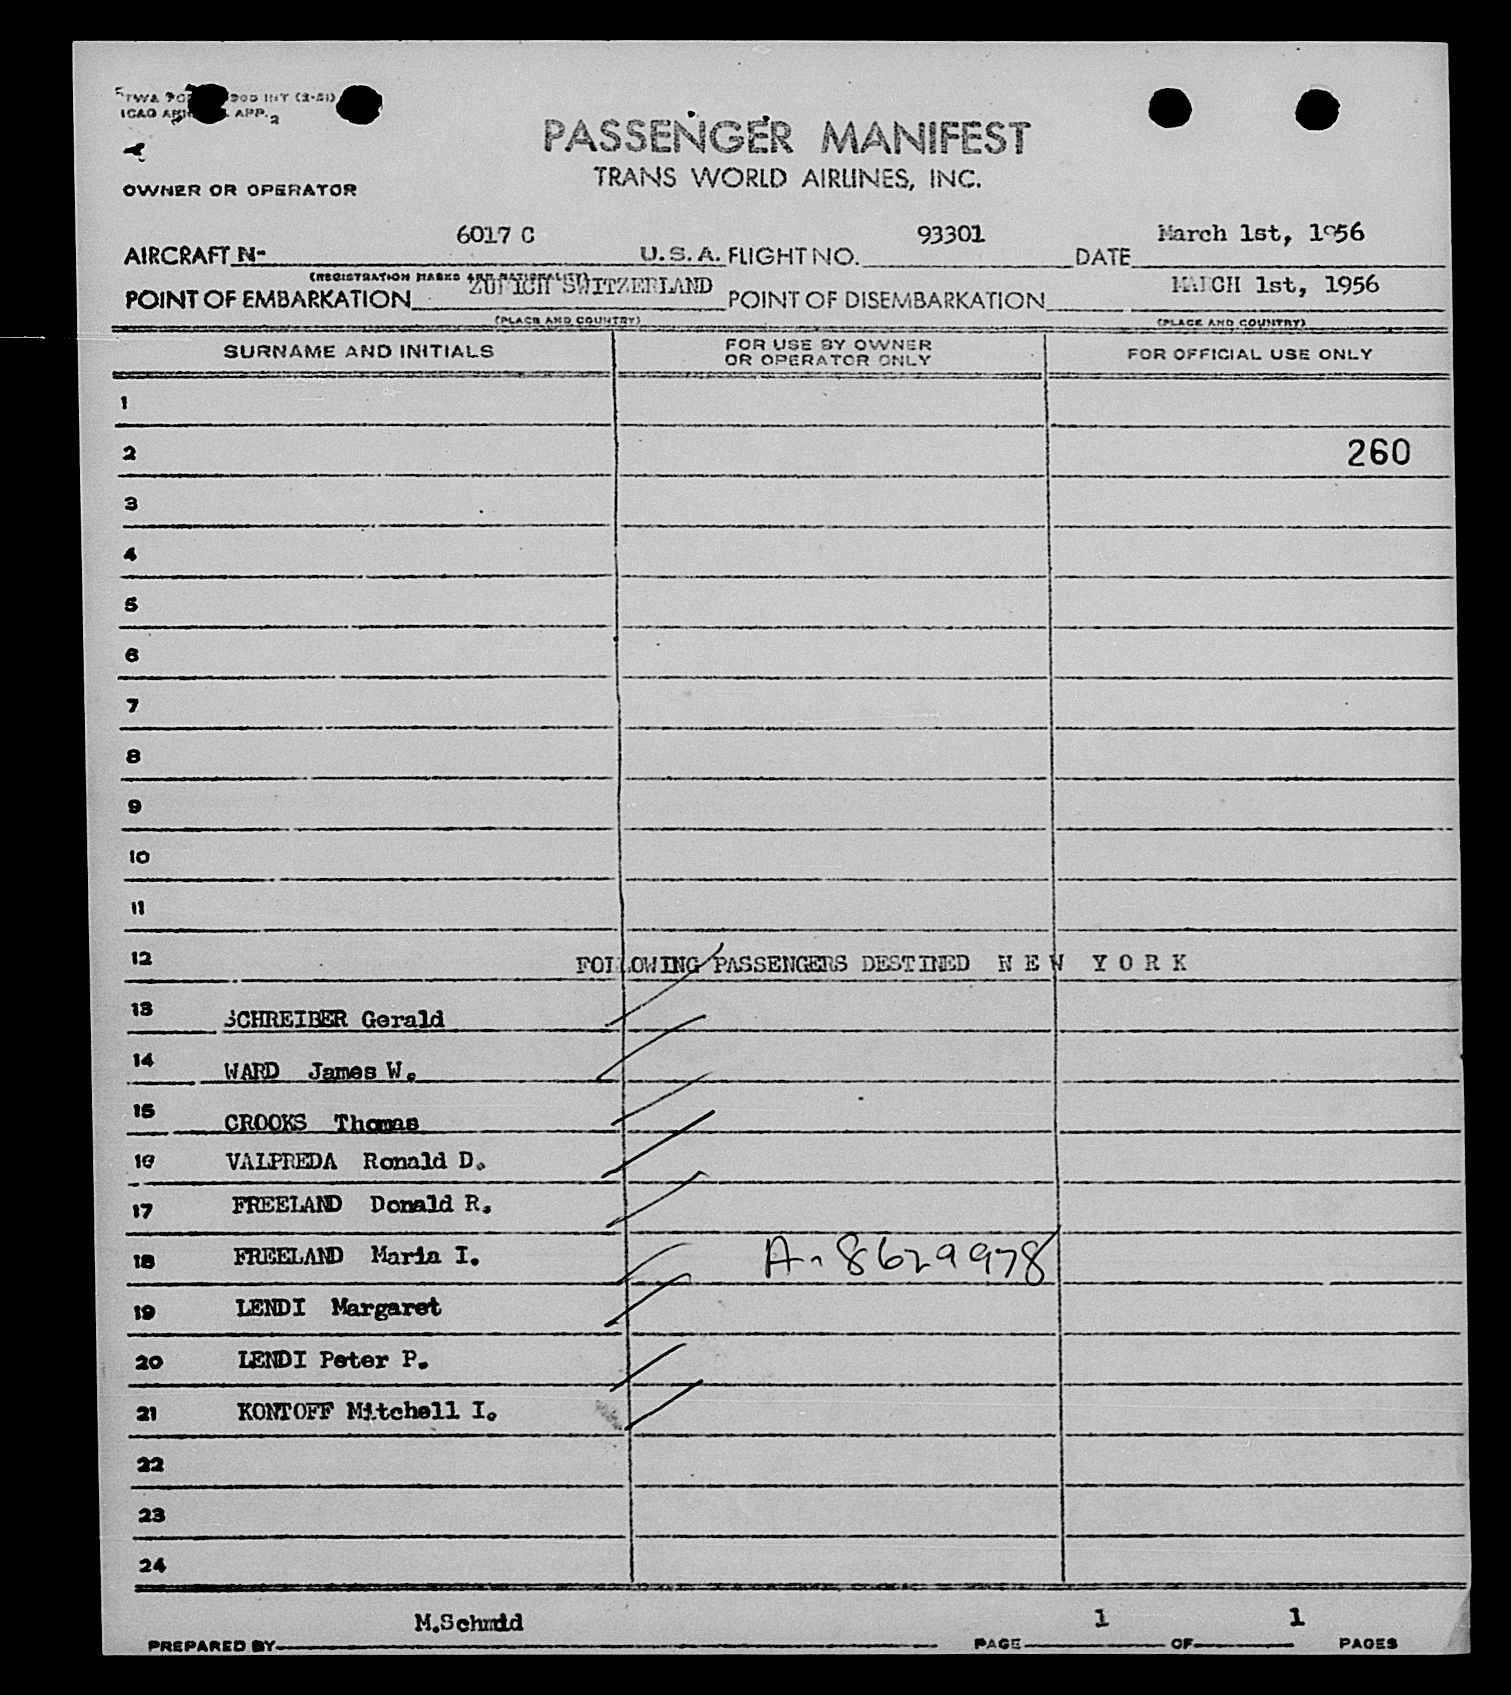 TWA 900 INT (2-51)
ICAO APP. 2
PASSENGER MANIFEST
TRANS WORLD AIRLINES, INC.
OWNER OR OPERATOR
AIRCRAFT N- 6017 C U.S.A. FLIGHT NO. 93301 DATE March 1st, 1956
(REGISTRATION MARKS AND NATIONALITY)
POINT OF EMBARKATION ZURICH SWITZERLAND POINT OF DISEMBARKATION MARCH 1st, 1956
(PLACE AND COUNTRY) (PLACE AND COUNTRY)
SURNAME AND INITIALS FOR USE BY OWNER OR OPERATOR ONLY FOR OFFICIAL USE ONLY
1
2 260
3
4
5
6
7
8
9
10
11
12 FOLLOWING PASSENGERS DESTINED N E W Y O R K
13 SCHREIBER Gerald
14 WARD James W.
15 CROOKS Thomas
16 VALPREDA Ronald D.
17 FREELAND Donald R.
18 FREELAND Maria I. A-8629978
19 LENDI Margaret
20 LENDI Peter P.
21 KONTOFF Mitchell I.
22
23
24
PREPARED BY M.Schmid PAGE 1 OF 1 PAGES